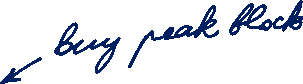 buy peak block